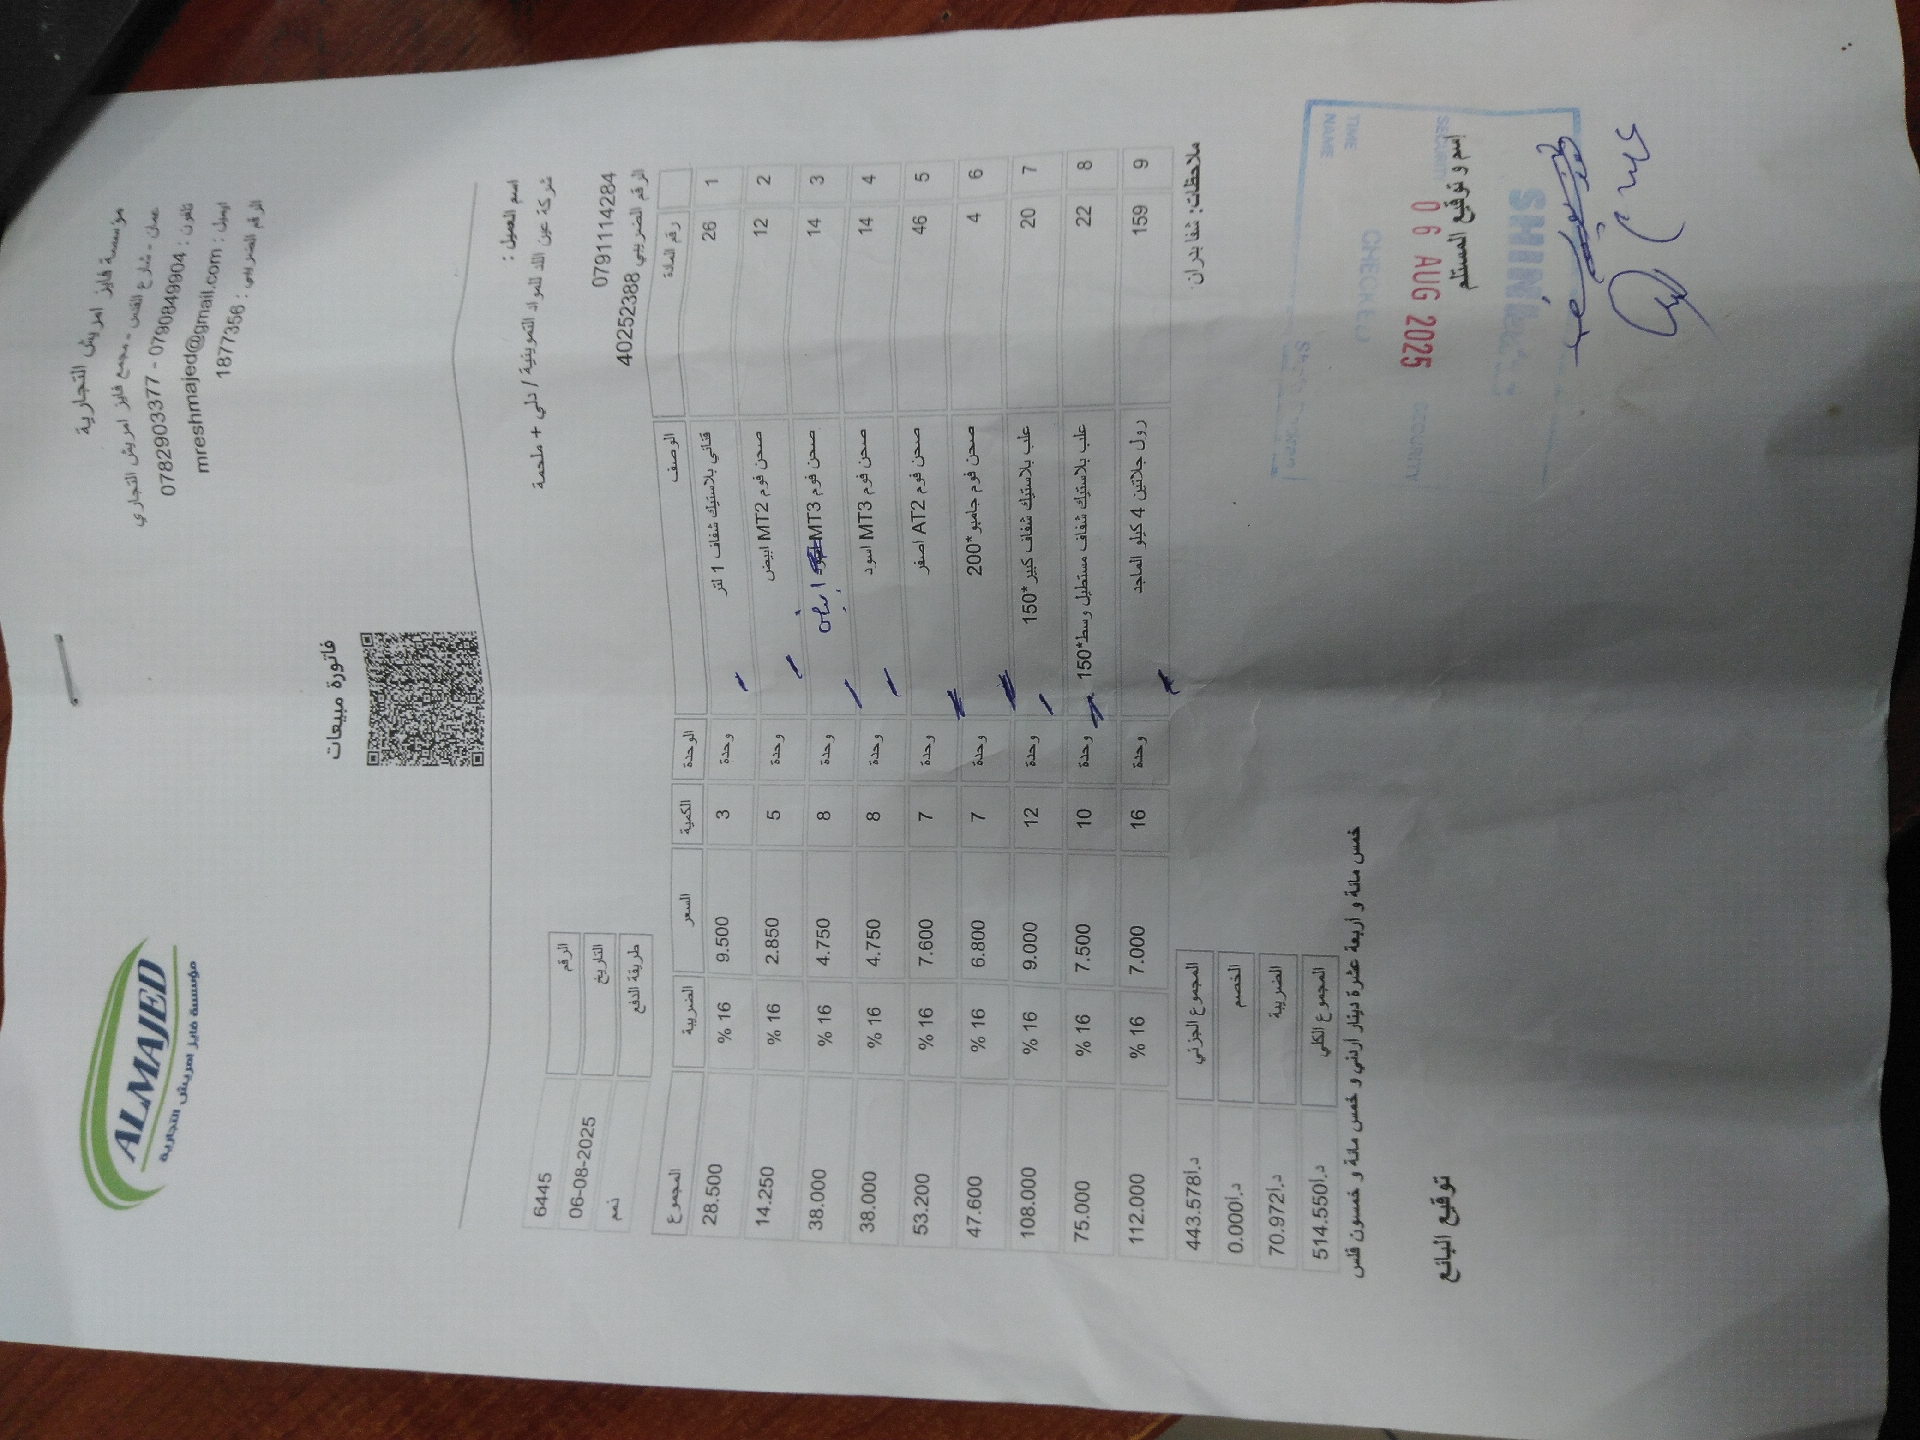 مؤسسة فايز امريش التجارية
عمان - شارع القدس - مجمع فايز امريش التجاري
تلفون : 0790849904 - 0782903377
ايميل : mreshmajed@gmail.com
الرقم الضريبي : 1877356
ALMAJED
مؤسسة فايز امريش التجارية
فاتورة مبيعات
اسم العميل :
شركة عين اللد للمواد التموينية / دلي + ملحمة
0791114284
الرقم الضريبي 40252388
الرقم 6445
التاريخ 06-08-2025
طريقة الدفع نمم
رقم المادة الوصف الوحدة الكمية السعر الضريبة المجموع
1 26 قناني بلاستيك شفاف 1 لتر وحدة 3 9.500 % 16 28.500
2 12 صحن فوم MT2 ابيض وحدة 5 2.850 % 16 14.250
3 14 صحن فوم MT3 ابيض وحدة 8 4.750 % 16 38.000
4 14 صحن فوم MT3 اسود وحدة 8 4.750 % 16 38.000
5 46 صحن فوم AT2 اصفر وحدة 7 7.600 % 16 53.200
6 4 صحن فوم جامبو *200 وحدة 7 6.800 % 16 47.600
7 20 علب بلاستيك شفاف كبير *150 وحدة 12 9.000 % 16 108.000
8 22 علب بلاستيك شفاف مستطيل وسط*150 وحدة 10 7.500 % 16 75.000
9 159 رول جلاتين 4 كيلو الماجد وحدة 16 7.000 % 16 112.000
ملاحظات: شفا بدران
المجموع الجزئي د.ا443.578
الخصم د.ا0.000
الضريبة د.ا70.972
المجموع الكلي د.ا514.550
خمس مائة و أربعة عشرة دينار اردني و خمس مائة و خمسون فلس
اسم و توقيع المستلم
توقيع البائع
TIME
NAME
CHECKED
SECURITY
06 AUG 2025